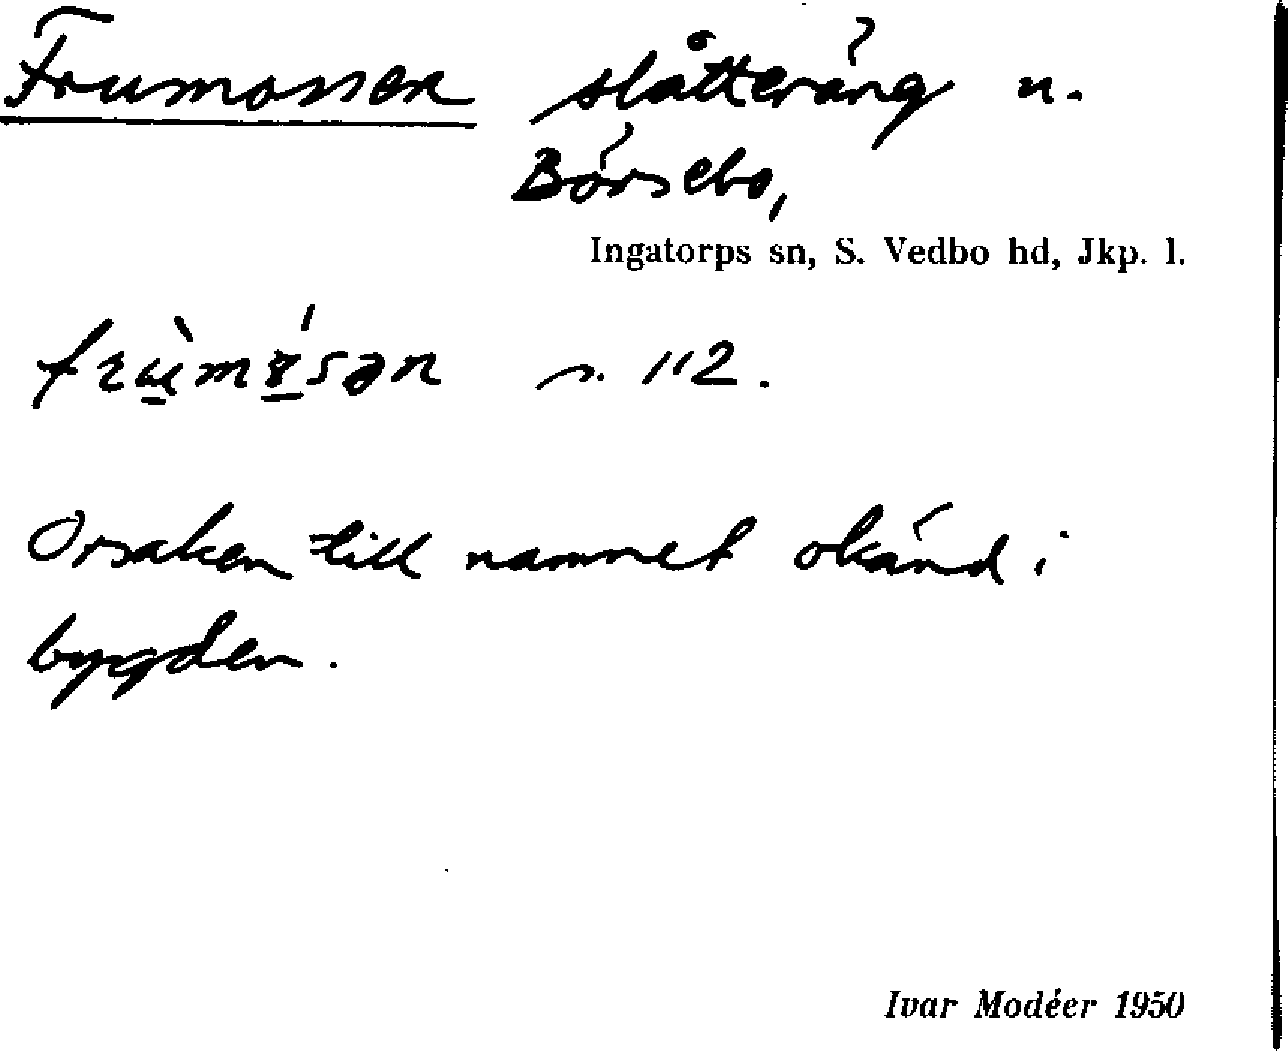 Frumossen slåtteräng u.
Börsebo,
Ingatorps sn, S. Vedbo hd, Jkp. l.
s. 112.
Orsaken till namnet okänd i
bygden.
Ivar Modéer 1950